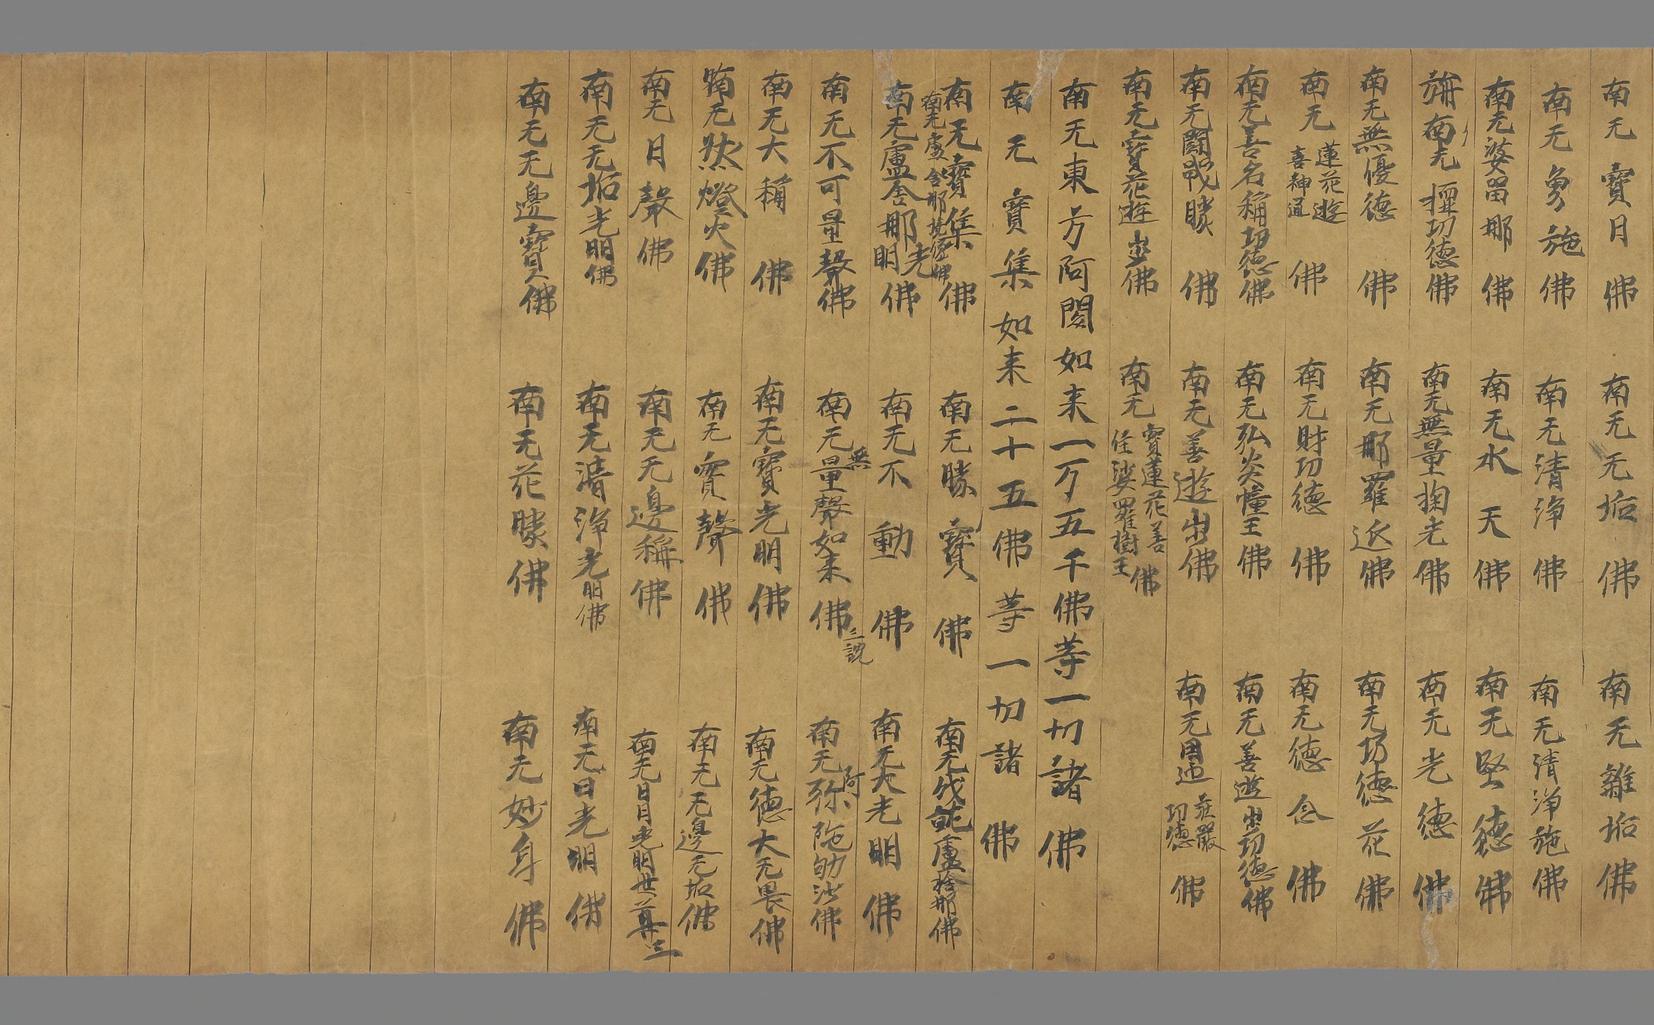 南无寶月佛 南无无垢佛 南无離垢佛
南无勇施佛 南无清淨佛 南无清淨施佛
南无婆留那佛 南无水天佛 南无堅德佛
南无栴檀功德佛 南无無量掬光佛 南无光德佛
南无無優德佛 南无那羅延佛 南无功德花佛
南无蓮花遊喜神通佛 南无財功德佛 南无德念佛
南无善名稱功德佛 南无弘炎幢王佛 南无善遊步功德佛
南无鬪戰勝佛 南无善遊步佛 南无周迊莊嚴功德佛
南无寶花遊步佛 南无寶蓮花善住娑羅樹王佛
南无東方阿閦如来一万五千佛等一切諸佛
南无寶集如来二十五佛等一切諸佛
南无寶集佛 南无勝寶佛 南无成就盧捨那佛
南无盧舍那鏡像佛
南无盧舍那光明佛 南无不動佛 南无大光明佛
南无不可量聲佛 南无無量聲如来佛三說 南无阿弥陁劬沙佛
南无大稱佛 南无寶光明佛 南无德大无畏佛
南无燃燈火佛 南无寶聲佛 南无无邊无垢佛
南无月聲佛 南无无邊稱佛 南无日月光明世尊三
南无无垢光明佛 南无清淨光明佛 南无日光明佛
南无无邊寶佛 南无花勝佛 南无妙身佛